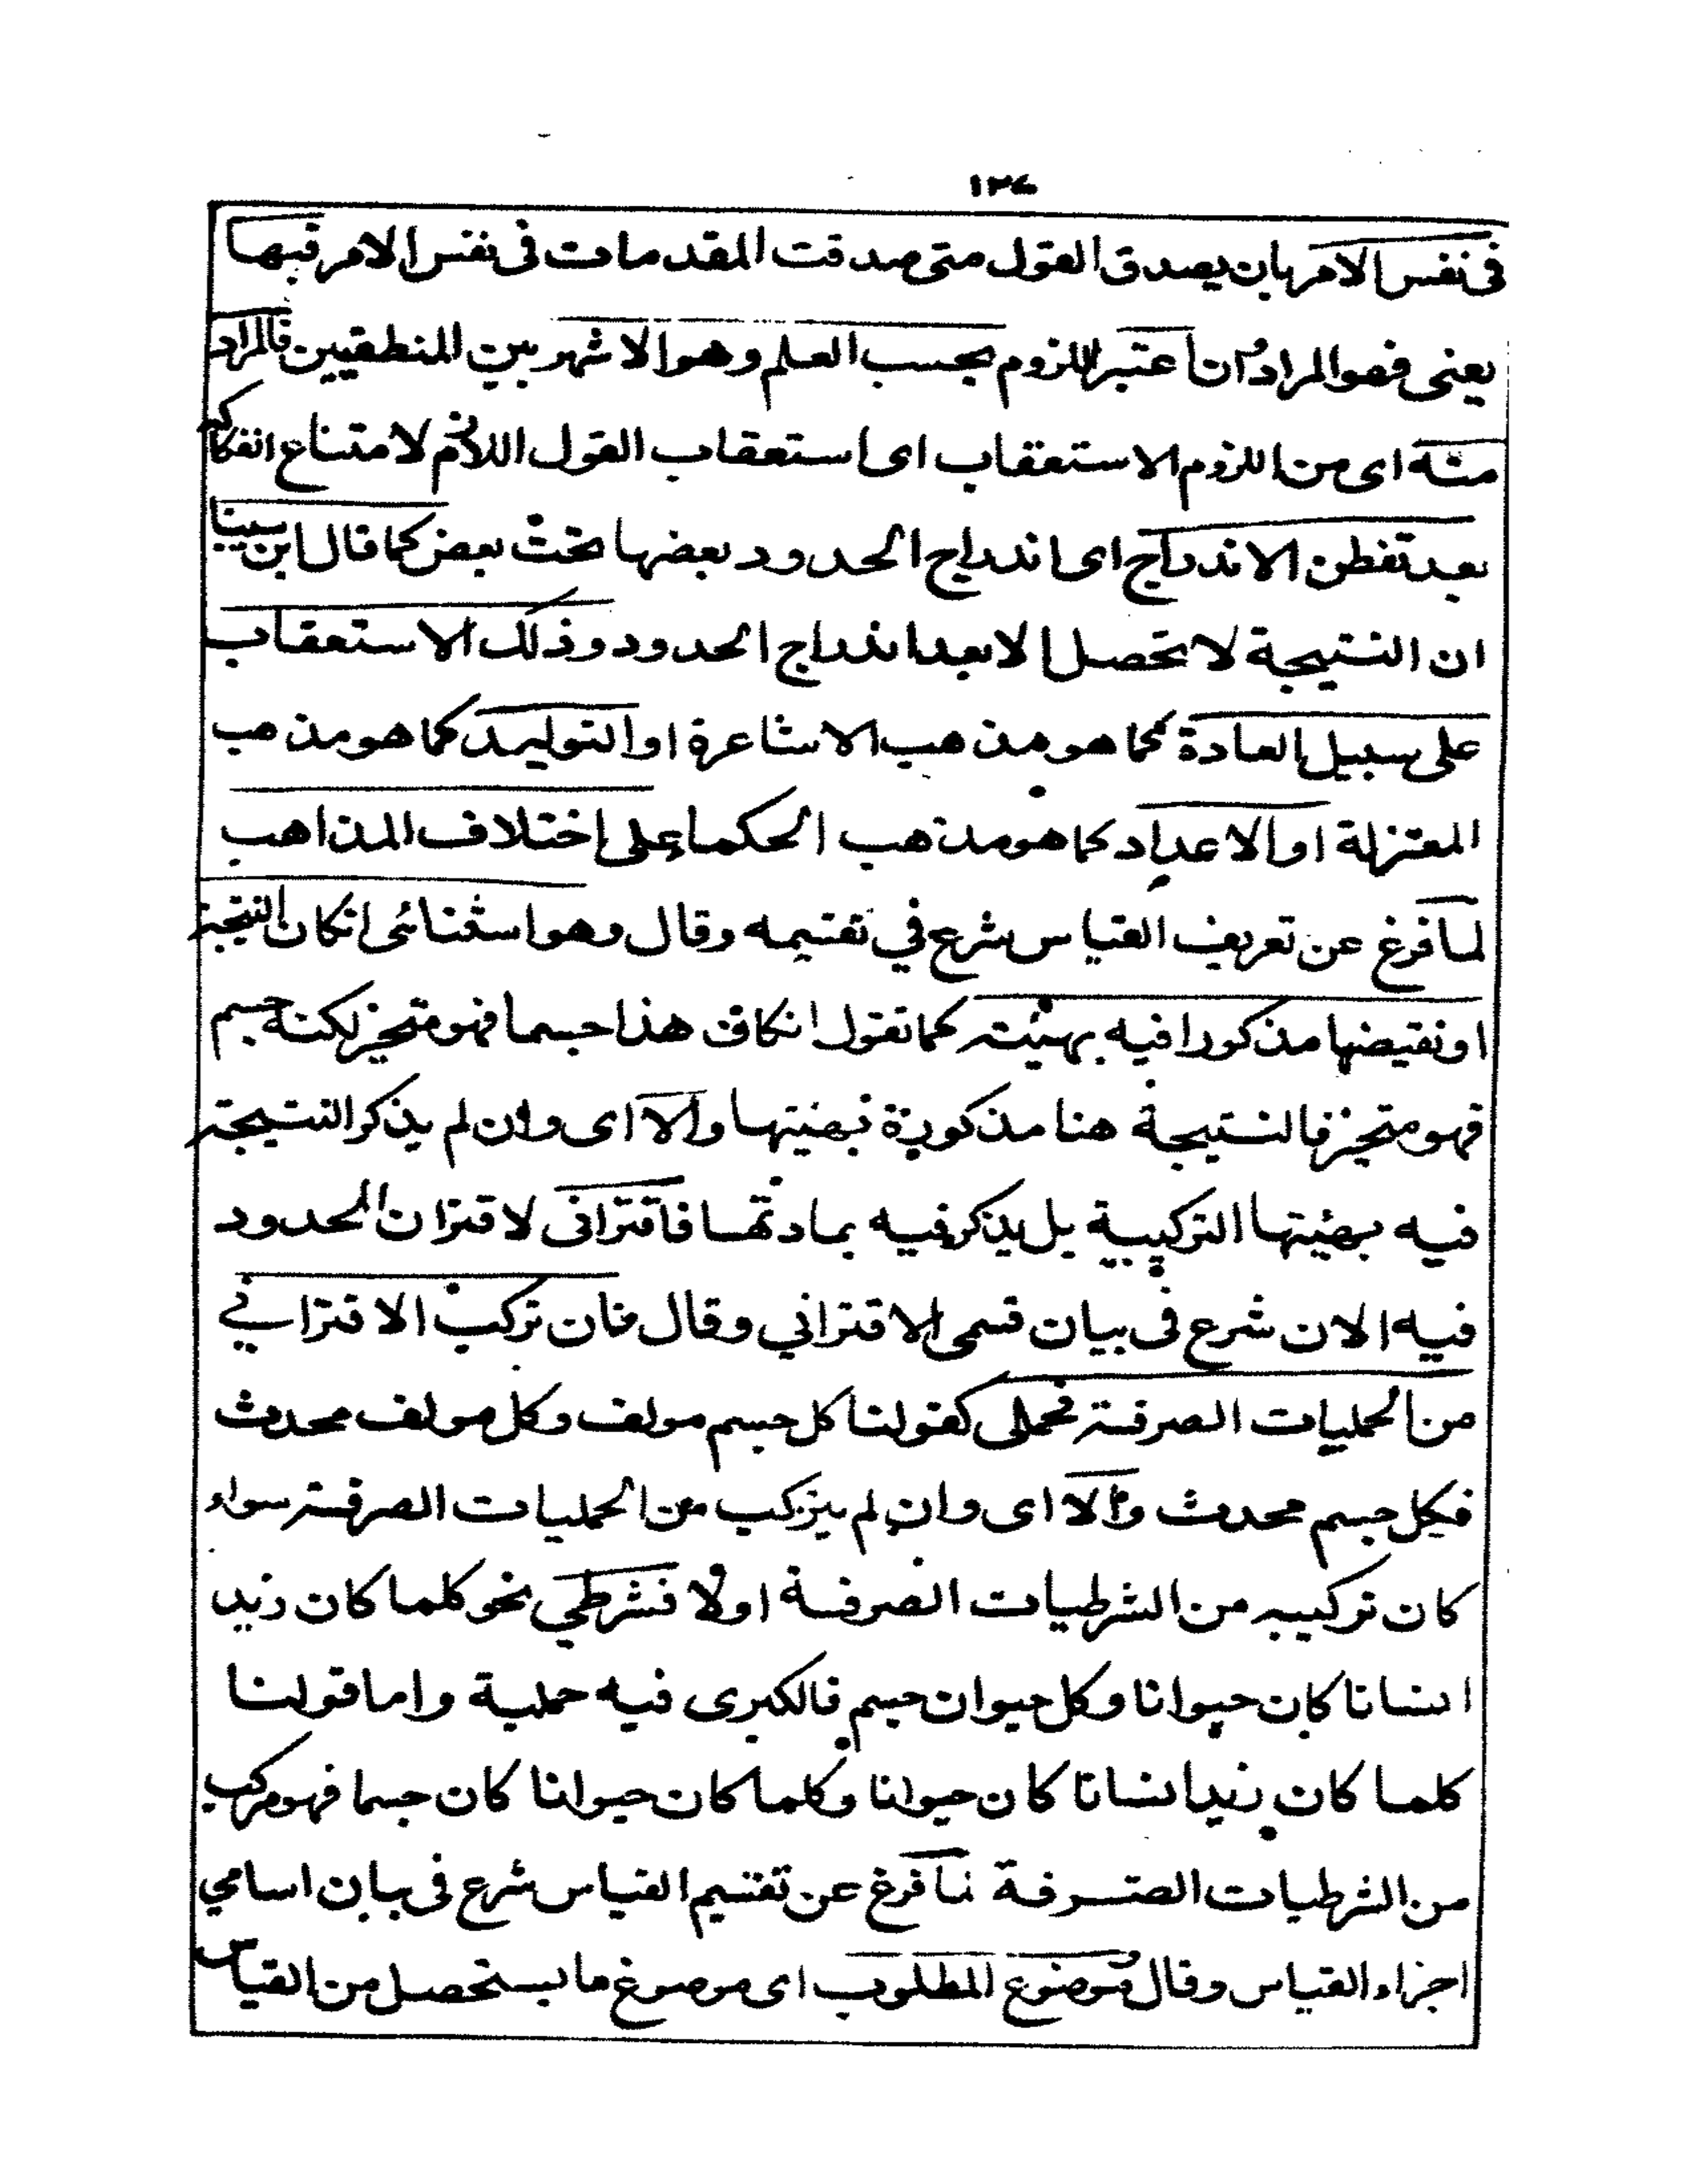 ١٣٤
فى نفس الامر بان يصدق القول متى صدقت المقدمات فى نفس الامر فبها
يعنى فهو المراد وان اعتبر اللزوم بحسب العلم وهو الاشهر بين المنطقيين فالمراد
منه اى من اللزوم الاستعقاب اى استعقاب القول اللازم لامتناع انفكاكه
بعد تفطن الاندراج اى اندراج الحدود بعضها تحت بعض كما قال ابن سينا
ان النتيجة لا تحصل الا بعد اندراج الحدود وذلك الاستعقاب
على سبيل العادة كما هو مذهب الاشاعرة او التوليد كما هو مذهب
المعتزلة او الاعداد كما هو مذهب الحكماء على اختلاف المذاهب
لما فرغ عن تعريف القياس شرع في تقسيمه وقال وهو استثنائى انكان النتيجة
او نقيضها مذكورا فيه بهيئته كما تقول انكان هذا جسما فهو متحيز لكنه جسم
فهو متحيز فالنتيجة هنا مذكورة بهيئتها والا اى وان لم يذكر النتيجة
فيه بهيئتها التركيبية بل يذكر فيه بمادتها فاقترانى لاقتران الحدود
فيه الان شرع فى بيان قسمى الاقتراني وقال فان تركب الاقتراني
من الحمليات الصرفة فحملى كقولنا كل جسم مولف وكل مولف محدث
فكل جسم محدث والا اى وان لم يتركب من الحمليات الصرفة سواء
كان تركيبه من الشرطيات الصرفة اولا فشرطي نحو كلما كان زيد
انسانا كان حيوانا وكل حيوان جسم فالكبرى فيه حملية واما قولنا
كلما كان زيد انسانا كان حيوانا وكلما كان حيوانا كان جسما فهو مركب
من الشرطيات الصرفة لما فرغ عن تقسيم القياس شرع فى بيان اسامي
اجزاء القياس وقال وموضوع المطلوب اى موضوع ما يستحصل من القياس